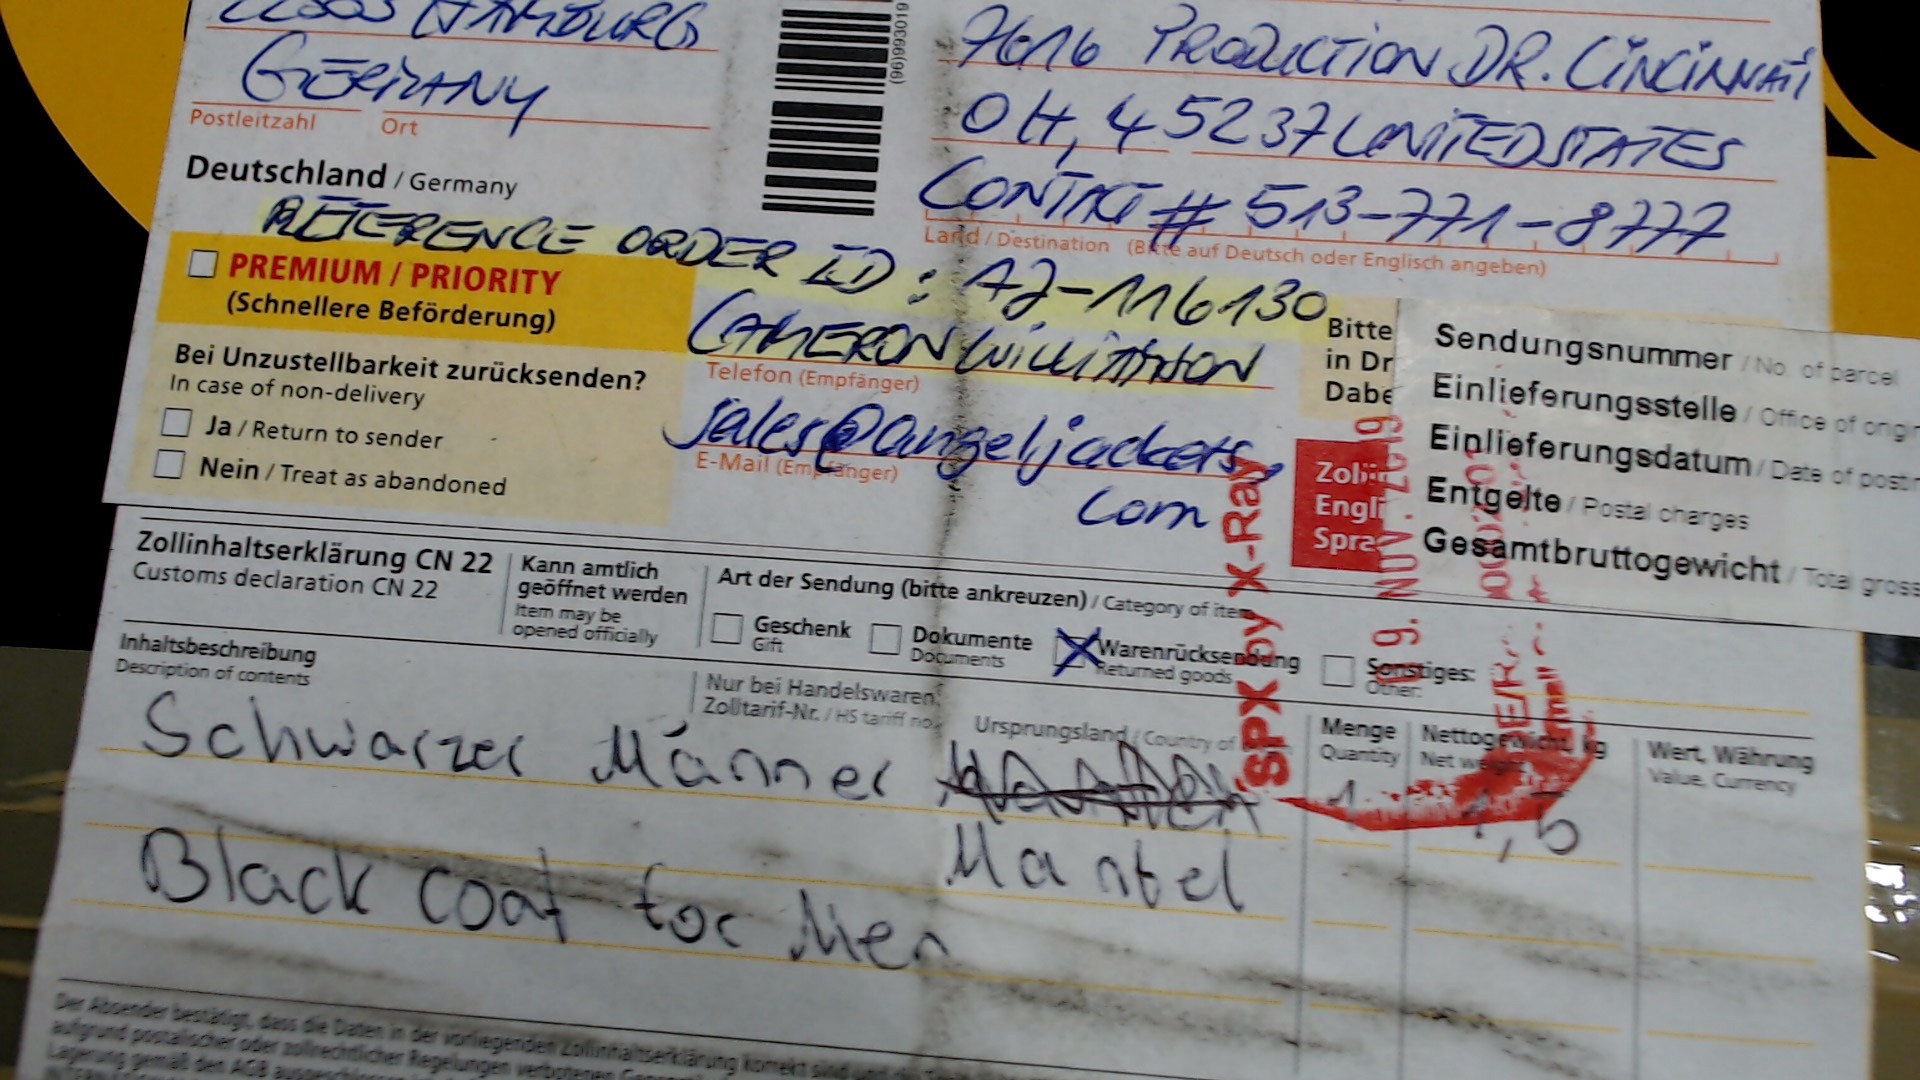 HAMBURG
GERMANY
Postleitzahl Ort
Deutschland / Germany
(96)993019
7616 PRODUCTION DR. CINCINNATI
OH, 45237 UNITED STATES
CONTACT # 513-771-8777
Land / Destination (Bitte auf Deutsch oder Englisch angeben)
REFERENCE ORDER ID: AJ-116130
PREMIUM / PRIORITY
(Schnellere Beförderung)
Bei Unzustellbarkeit zurücksenden?
In case of non-delivery
Ja / Return to sender
Nein / Treat as abandoned
CAMERON
Telefon (Empfänger)
sales@angeljackets.
com
E-Mail (Empfänger)
Bitte
in Dr
Dabe
Engli
Spra
Sendungsnummer / No. of parcel
Einlieferungsstelle / Office of origin
Einlieferungsdatum / Date of post
Entgelte / Postal charges
Gesamtbruttogewicht / Total gross
SPX by X-Ray
Zollinhaltserklärung CN 22
Customs declaration CN 22
Kann amtlich
geöffnet werden
Item may be
opened officially
Art der Sendung (bitte ankreuzen) / Category of item
Geschenk
Gift
Dokumente
Documents
Warenrücksendung
Returned goods
Sonstiges:
Other:
Inhaltsbeschreibung
Description of contents
Nur bei Handelswaren:
Zolltarif-Nr. / HS tariff no.
Ursprungsland / Country of
Menge
Quantity
Nettogewicht, kg
Net weight
Wert, Währung
Value, Currency
Schwarzer Männer
Mantel
1 1,5
Black coat for Men
Der Absender bestätigt, dass die Daten in der vorliegenden Zollinhaltserklärung korrekt sind und
aufgrund postalischer oder zollrechtlicher Regelungen verbotenen
Lagerung gemäß den AGB ausgeschlossen